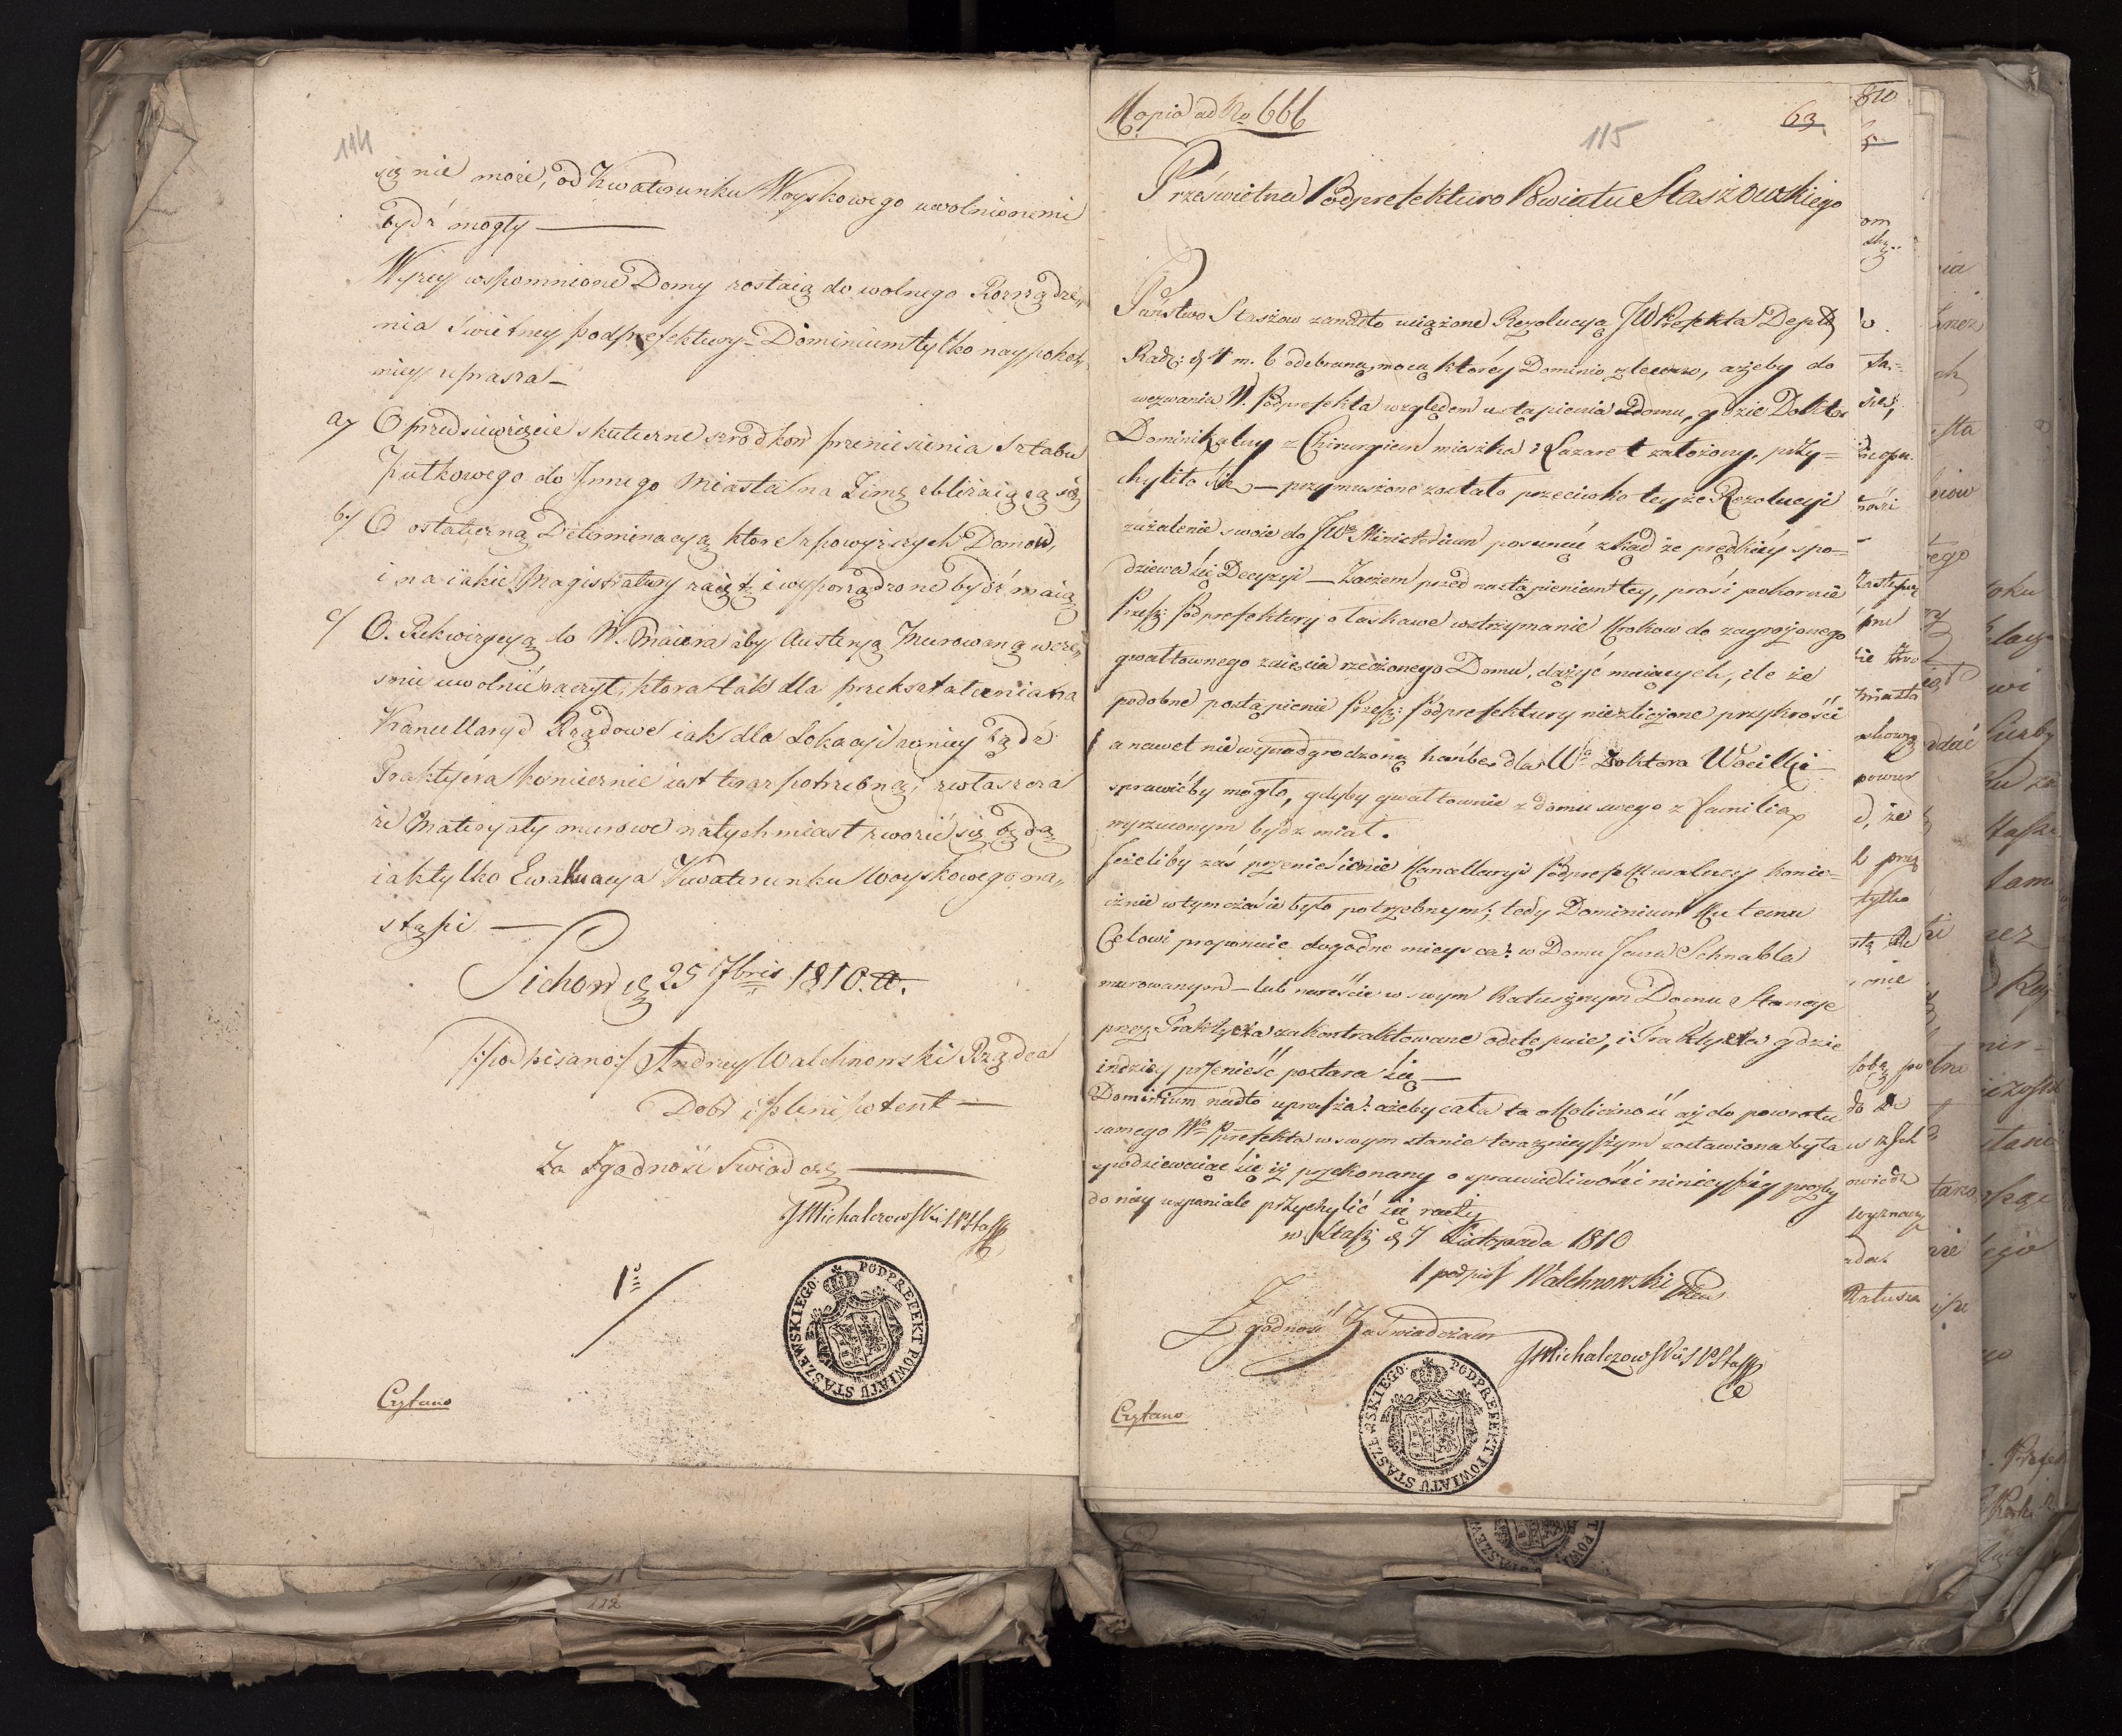 114
się nie może, od Kwaterunku Woyskowego uwolnionemi
bydź mogły
Wyżey wspomnione Domy zostaią do wolnego Rozrządze„
nia Swietney podprefektury - Dominium tylko naypokor„
niey uprasza -
a/ O przedsiewzięcie skuteczne szrodkow przeniesienia Sztabu
Pułkowego do Innego Miasta na Zimę zbliżaiącą się
b/ O ostateczną Determinacyą ktore z powyższych Domow,
i na iakie Magistratury zaięte i wyporządzone bydź maią
c/ O. Rekwizycyą do W. Maiera aby Austeryą Murowaną wcze„
snie uwolnić raczył, ktora tak dla przekształcenia na
Kancellaryę Rządowe iak dla Lokacyi
Traktyera koniecznie iest teraz potrzebną, zwłaszcza
że Materyały murowe natychmiast zwozić się będą
iak tylko Ewakuacya Kwaterunku Woyskowego na„
stąpi —
Sichow d 25 7bris 1810. a.
/:podpisano:/ Andrzey Walchnowski Rządca
Dobr i plenipotent —
Za Zgodność Swiadczę
JMichalczowski SPStasz
1
PODPREFEKT POWIATU STASZEWSKIEGO
Czytano
112
Kopia ad No 666
63
115
Prześwietna Podprefekturo Powiatu Staszowskiego
Państwo Staszow zanadto uciążone Rezolucyą JW Prefekta Depttu
Rad: d 4 m. b odebraną, mocą którey Dominio zlecono, ażeby do
wezwania W. Podprefekta względem ustąpienia Domu, gdzie Doktor
Dominikalny z Chirurgiem mieszka i Lazaret założony, przy=
chyliło się — przymuszone zostało przeciwko teyże Rezolucyi
zażalenie swoie do JW Ministerium posunąć zkąd że prędkiey spo=
dziewa się Decyzyi — Zaczem przed nastąpieniem tey, prosi pokornie
Prześ: Podprefektury o łaskawe wstrzymanie Krokow do zagrożonego
gwałtownego zaięcia rzeczonego Domu, dążyć maiących, ile że
podobne postąpienie Prześ: Podprefektury niezliczone przykrości
a nawet niewynadgrodzoną hańbę dla W Doktora Wocilki
sprawićby mogło, gdyby gwałtownie z domu swego z familią
wyrzuconym bydź miał.
Jeżeliby zaś przeniesienie Kancellaryi Podprefekturalney konie=
cznie w tym czasie było potrzebnym; tedy Dominium Ku temu
Celowi proponuie dogodne mieysca: w Domu Jana Schnabla
murowanym — lub nareście w swym Ratusznym Domu Stancye
przez Traktyera zakontraktowane odstępuie, i Traktyera gdzie
indziey przenieść postara się —
Dominium nadto uprasza: ażeby cała ta okoliczność aż do powrotu
samego W Pprefekta w swym stanie teraznieyszym zostawiona była
spodziewaiąc się iż przekonany o sprawiedliwości ninieyszey prozby
do niey wspaniale przychylić się raczy
w Stasz d 7 Listopada 1810
/ podpis / Walchnowski Plen
Zgodność Zaświadczam
JMichalczowski SPStasz
PODPREFEKT POWIATU STASZEWSKIEGO
Czytano